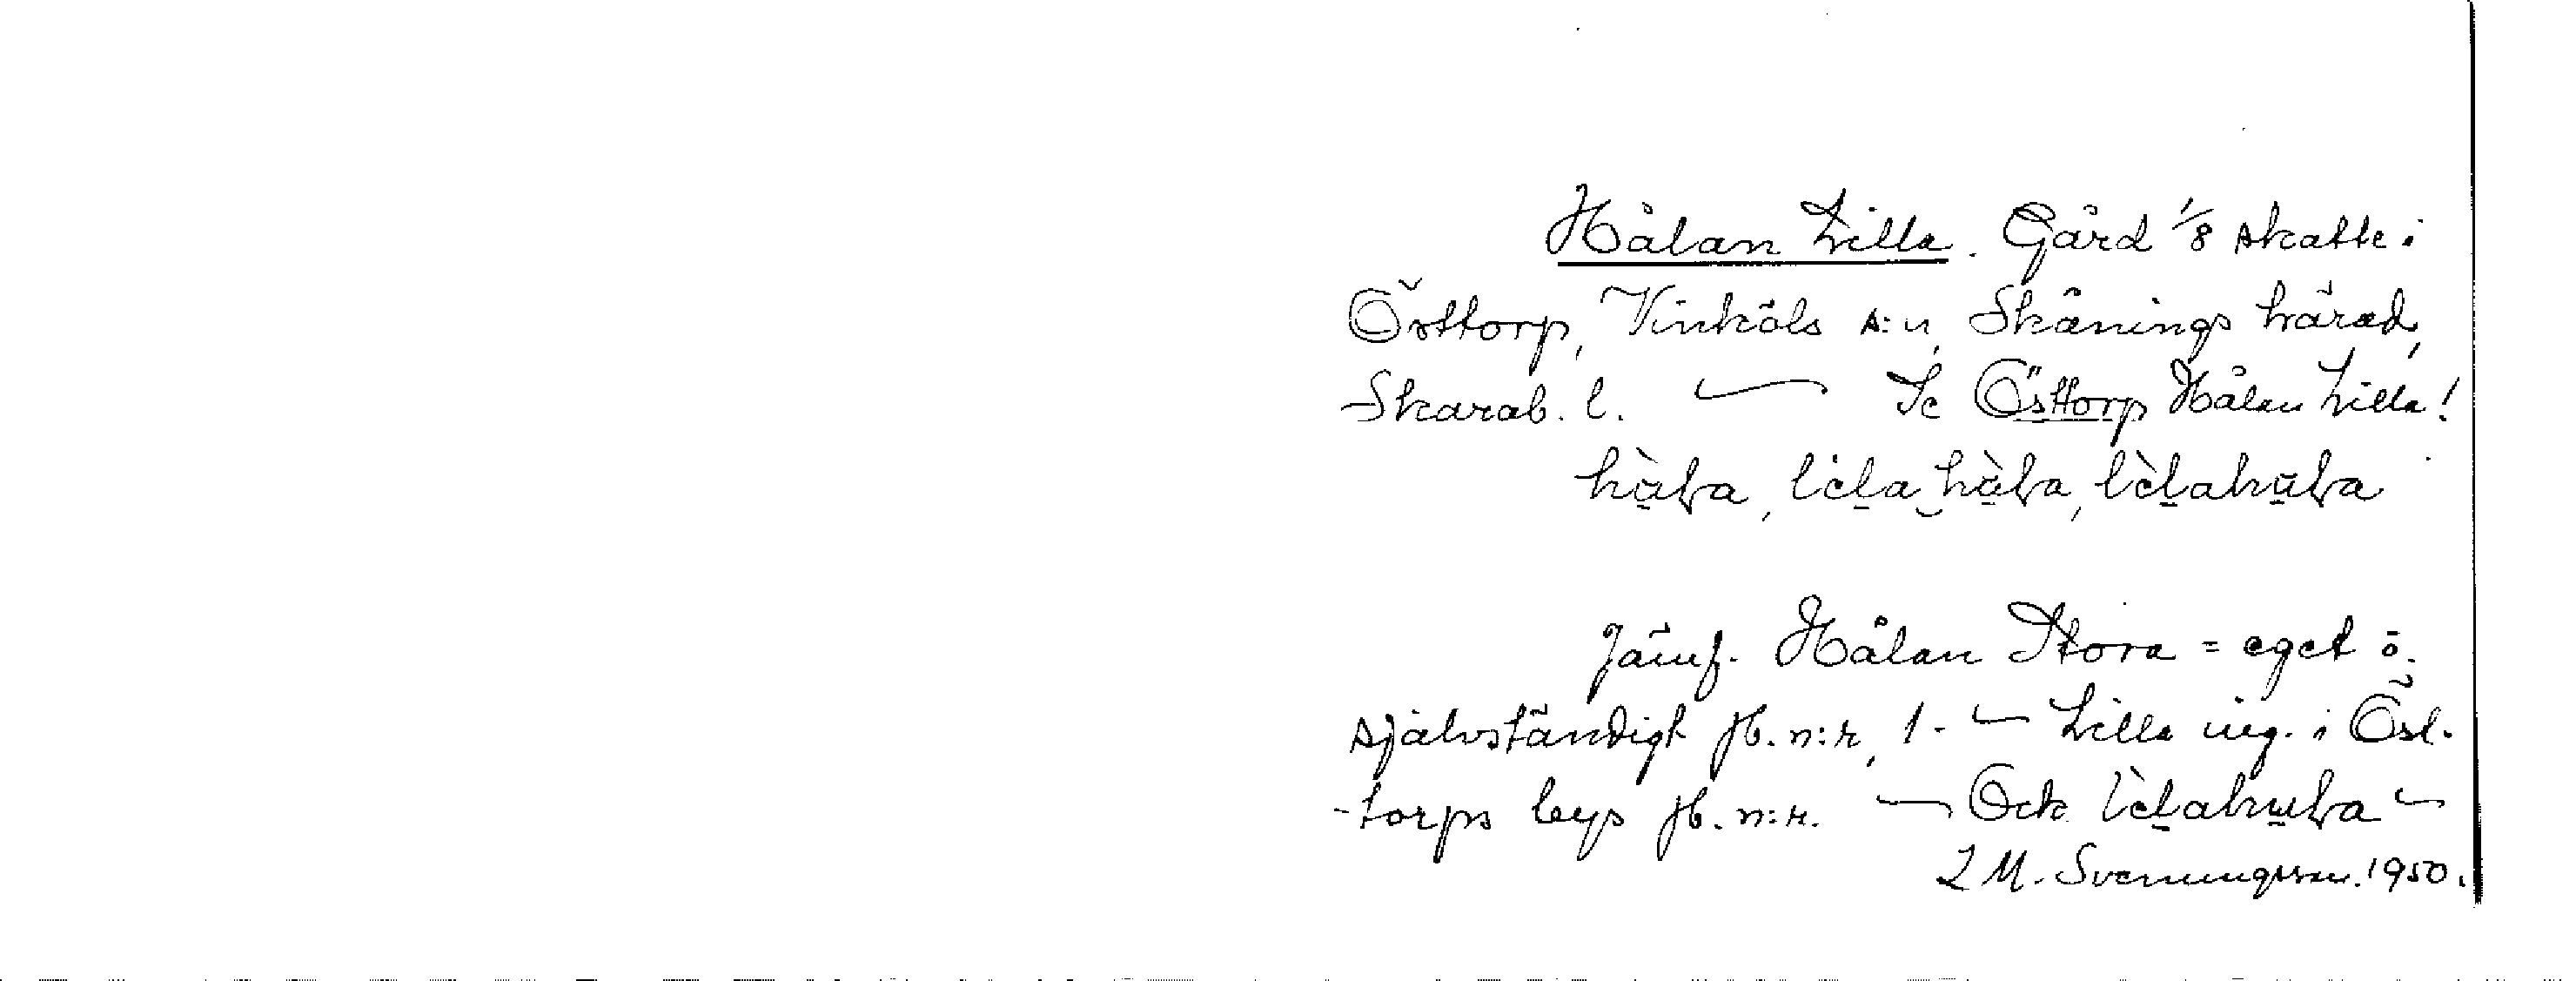 Hålan Lilla. Gård 1/8 skatte i
Östtorp, Vinköls s:n, Skånings härad,
Skarab. l. — Se Östtorp Hålan Lilla!
Jämf. Hålan Stora = eget o.
självständigt jb. n:r, 1. — Lilla ing. i Öst-
-torps bys jb. n:r. — Ock
L M. Svenungsson. 1950.